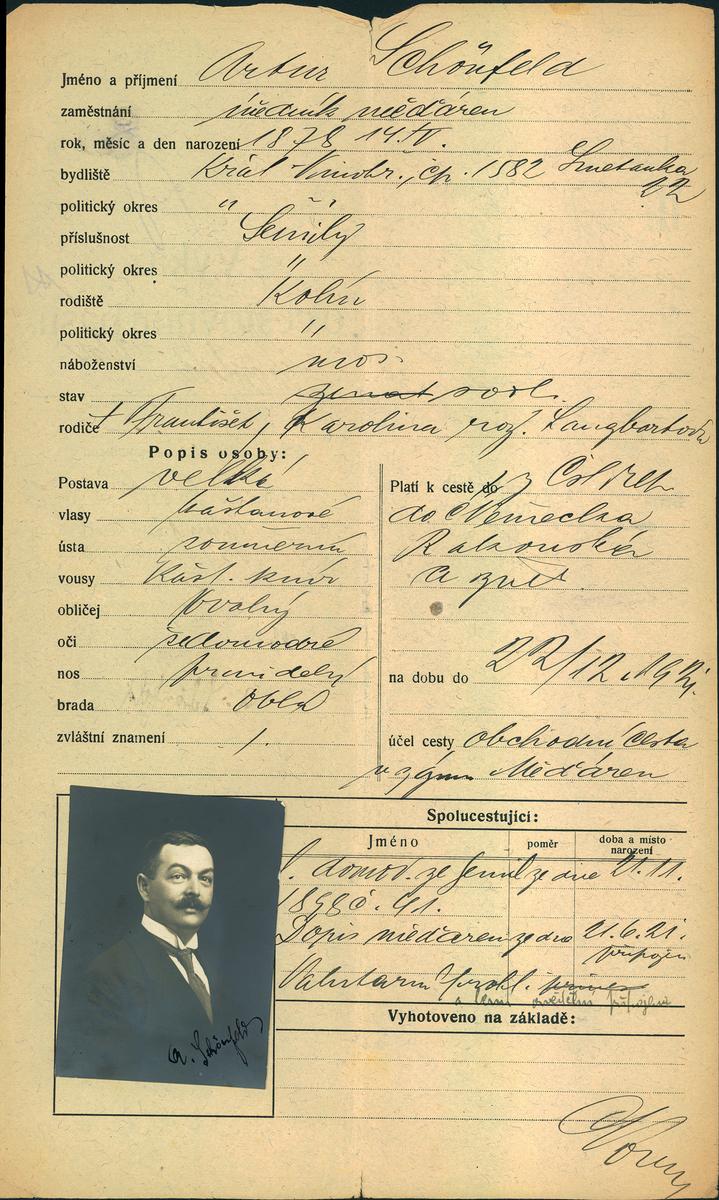 Jméno a příjmení Artur Schönfeld
zaměstnání úředník měďáren
rok, měsíc a den narození 1878 14.IV.
bydliště Král. Vinohr., čp. 1582 Smetanka
22
politický okres " "
příslušnost Semily
politický okres "
rodiště Kolín
politický okres "
náboženství mos.
stav ženat
rodiče † František, Karolina roz. Langbartová
Popis osoby:
Postava velká
vlasy kaštanové
ústa souměrná
vousy kašt. knír
obličej oválný
oči šedomodré
nos pravidelný
brada oblá
zvláštní znamení /.
Platí k cestě do z Čsl. rep.
do Německa
Rakouska
a zpět
na dobu do 22/12 1921.
účel cesty obchodní cesta
v zájmu Měďáren
Spolucestující:
Jméno poměr doba a místo narození
D. domov. ze Semil ze dne 21.11.
1898 č. 41.
Dopis měďáren ze dne 21.6.21.
připojen
Vyhotoveno na základě:
A. Schönfeld